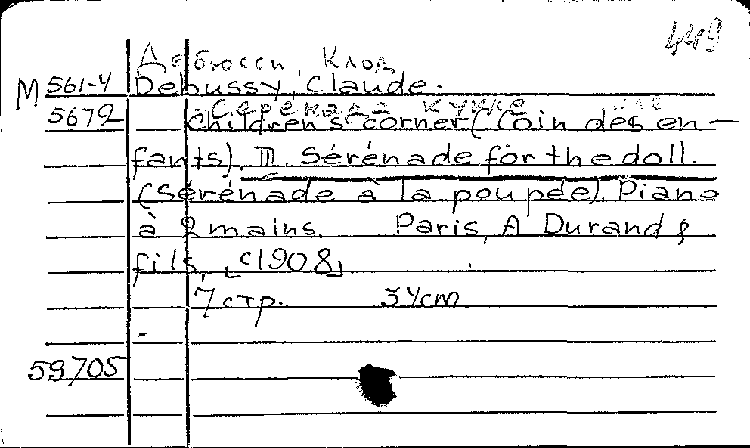 449
Дебюсси, Клод
М 561-4 Debussy, Claude.
Серенада кукле
5679 Children's corner (Coin des en-
fants). III. Sérénade for the doll.
(Sérénade à la poupée). Piano
à 2 mains. Paris, A Durand &
fils, [c1908]
7 стр. 34 cm
59705